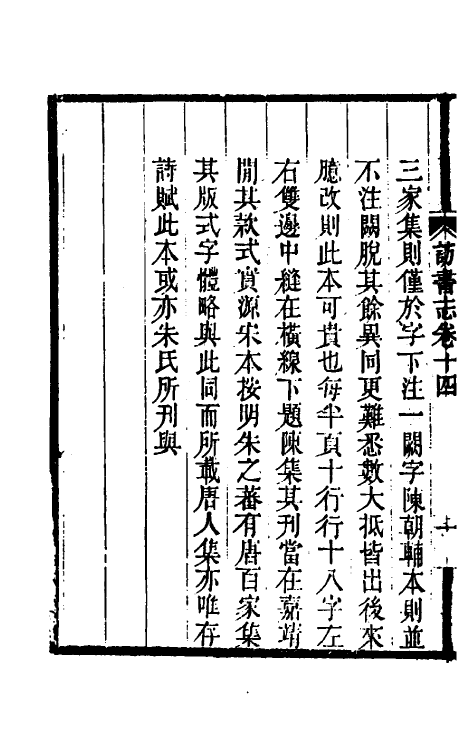 本訪書志卷十四
三家集則僅於字下注一闕字陳朝輔本則並
不注闕脫其餘異同更難悉數大抵皆出後來
臆改則此本可貴也每半頁十行行十八字左
右雙邊中縫在橫線下題陳集其刊當在嘉靖
間其款式實源宋本按明朱之蕃有唐百家集
其版式字體略與此同而所載唐人集亦唯存
詩賦此本或亦朱氏所刊與